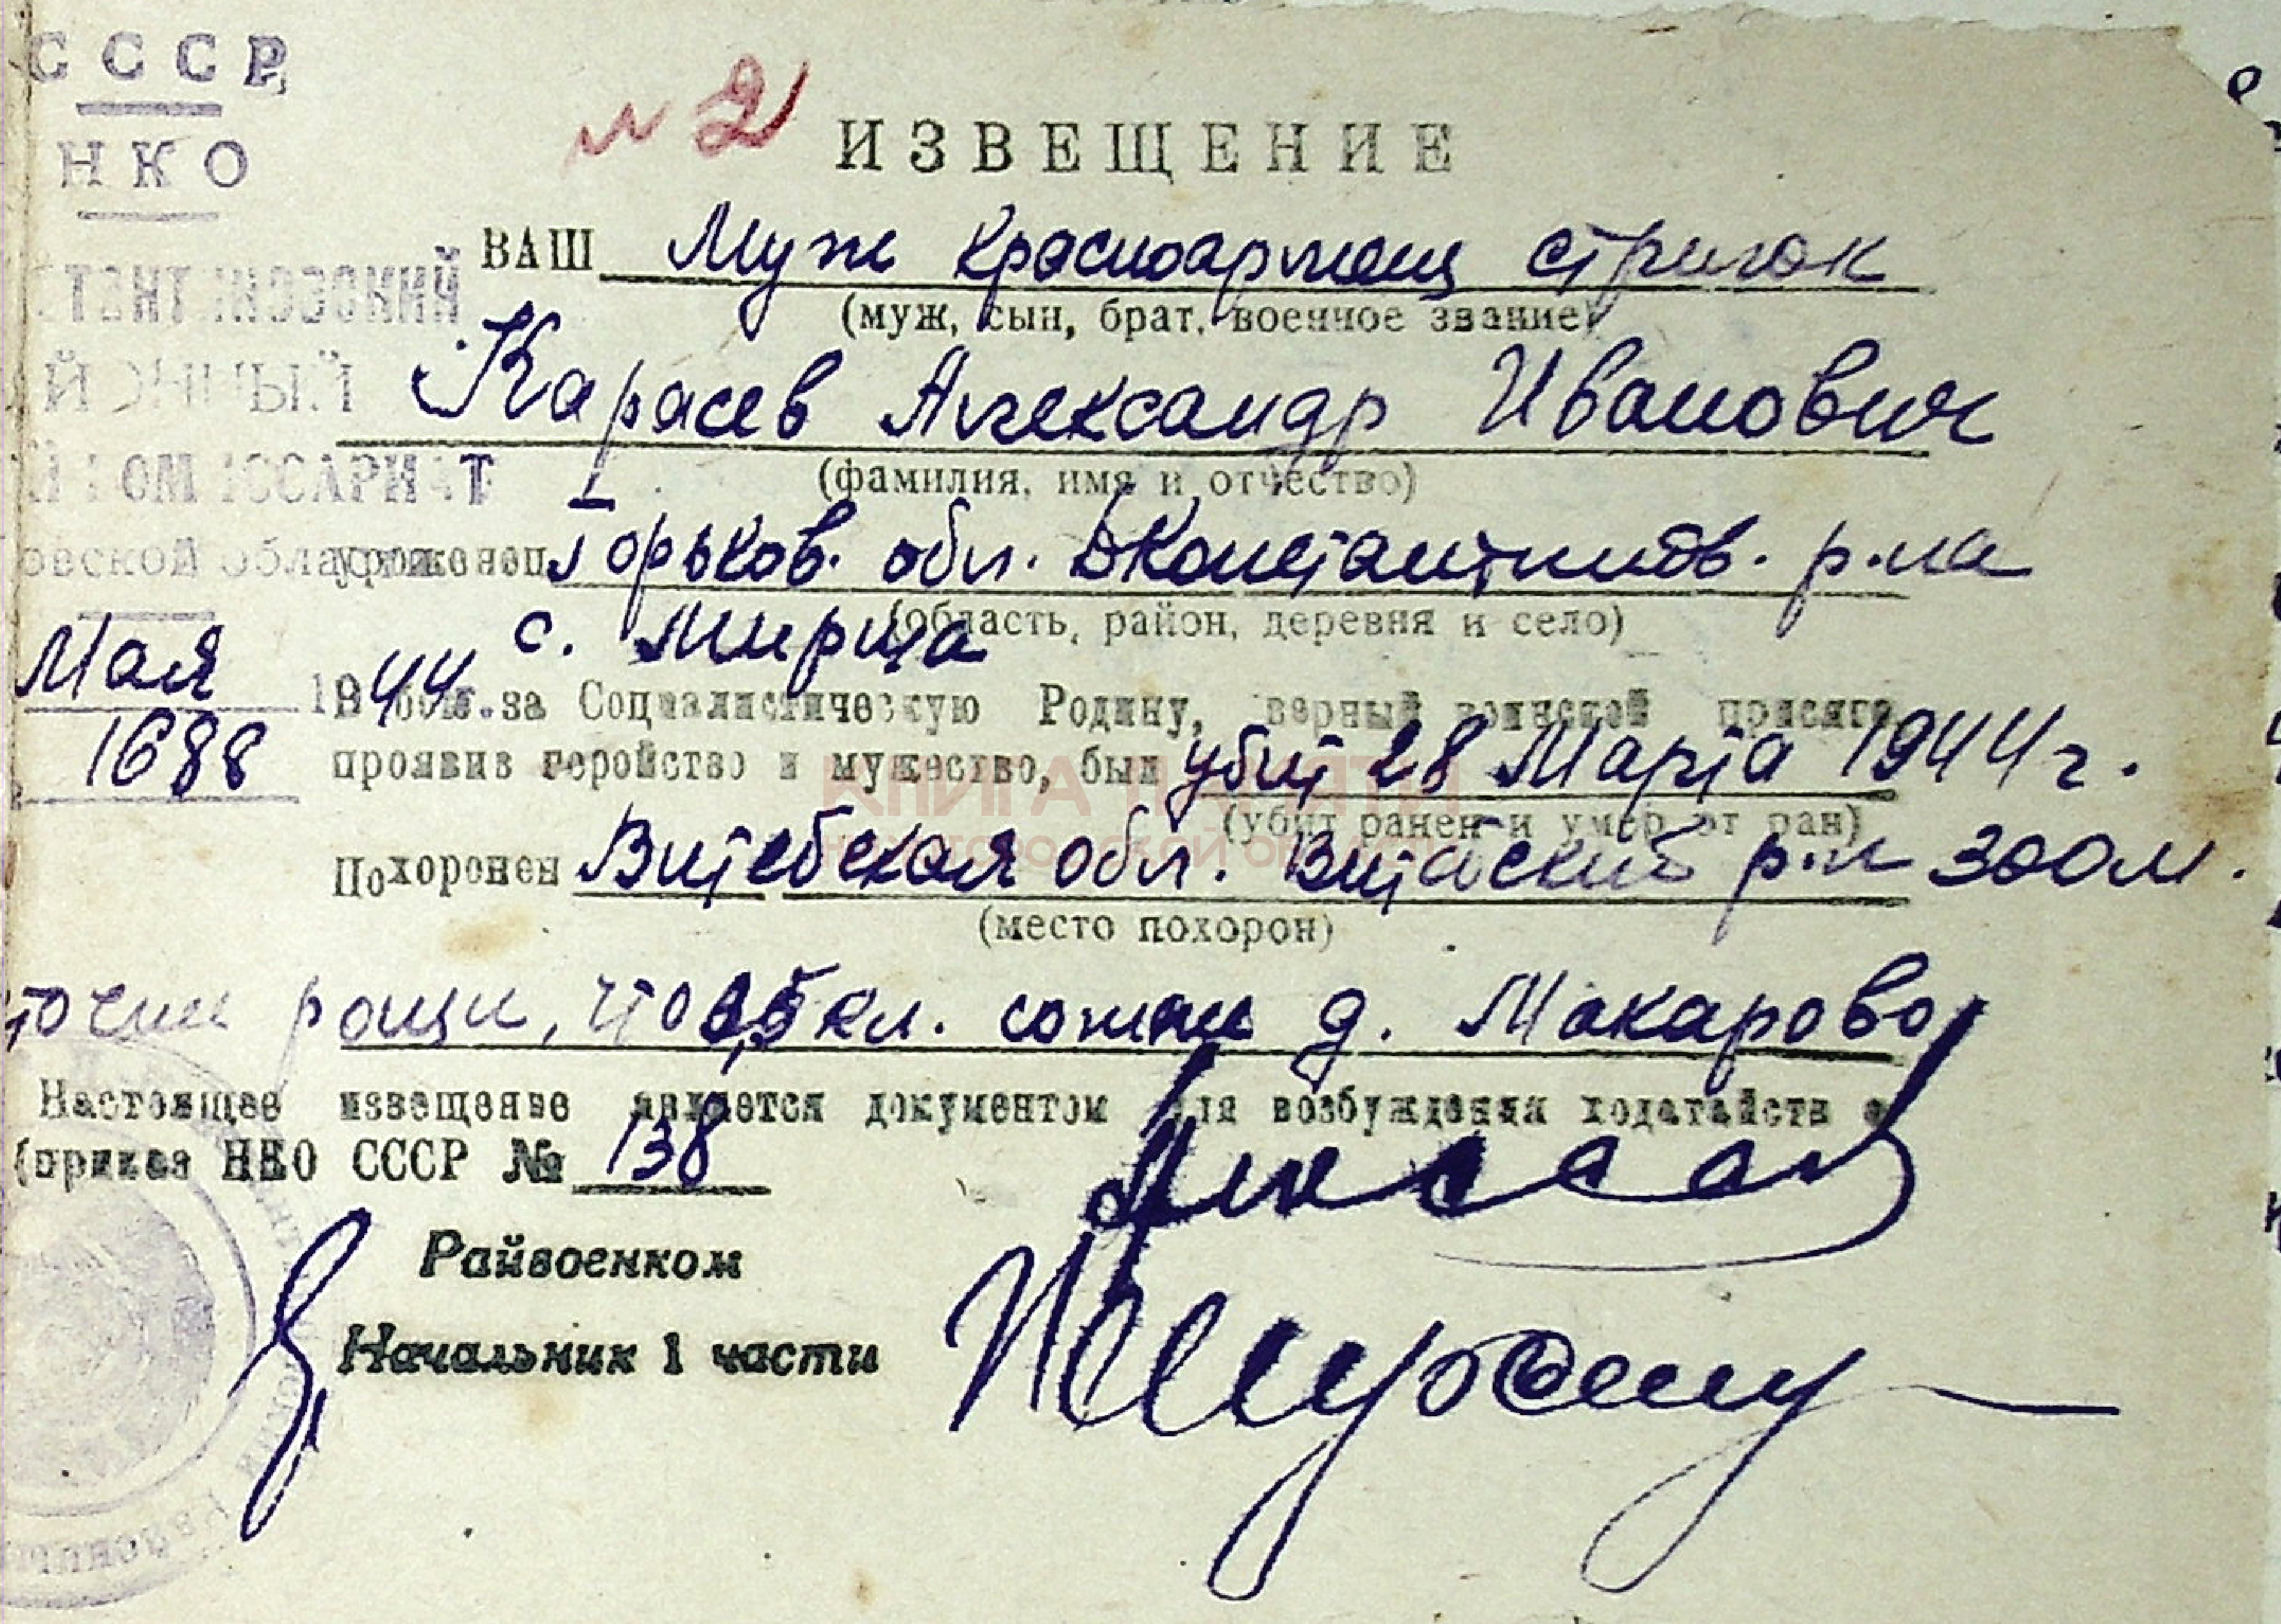 СССР
НКО
№ 2
ИЗВЕЩЕНИЕ
ВАШ Муж красноармеец стрелок
(муж, сын, брат, военное звание)
Карасев Александр Иванович
(фамилия, имя и отчество)
уроженец Горьков. обл. Б Константинов. р-на
(область, район, деревня и село)
с. Мирца
Мая 1944 г.
1688
В бою за Социалистическую Родину, верный воинской присяге,
проявив геройство и мужество, был убит 28 Марта 1944 г.
(убит ранен и умер от ран)
КНИГА ПАМЯТИ
НИЖЕГОРОДСКОЙ ОБЛАСТИ
Похоронен Витебская обл. Витебский р-н 300 м.
(место похорон)
рощи, что 0,5 км. д. Макарово
Настоящее извещение является документом для возбуждения ходатайств о
(приказ НКО СССР № 138
Райвоенком
Начальник 1 части